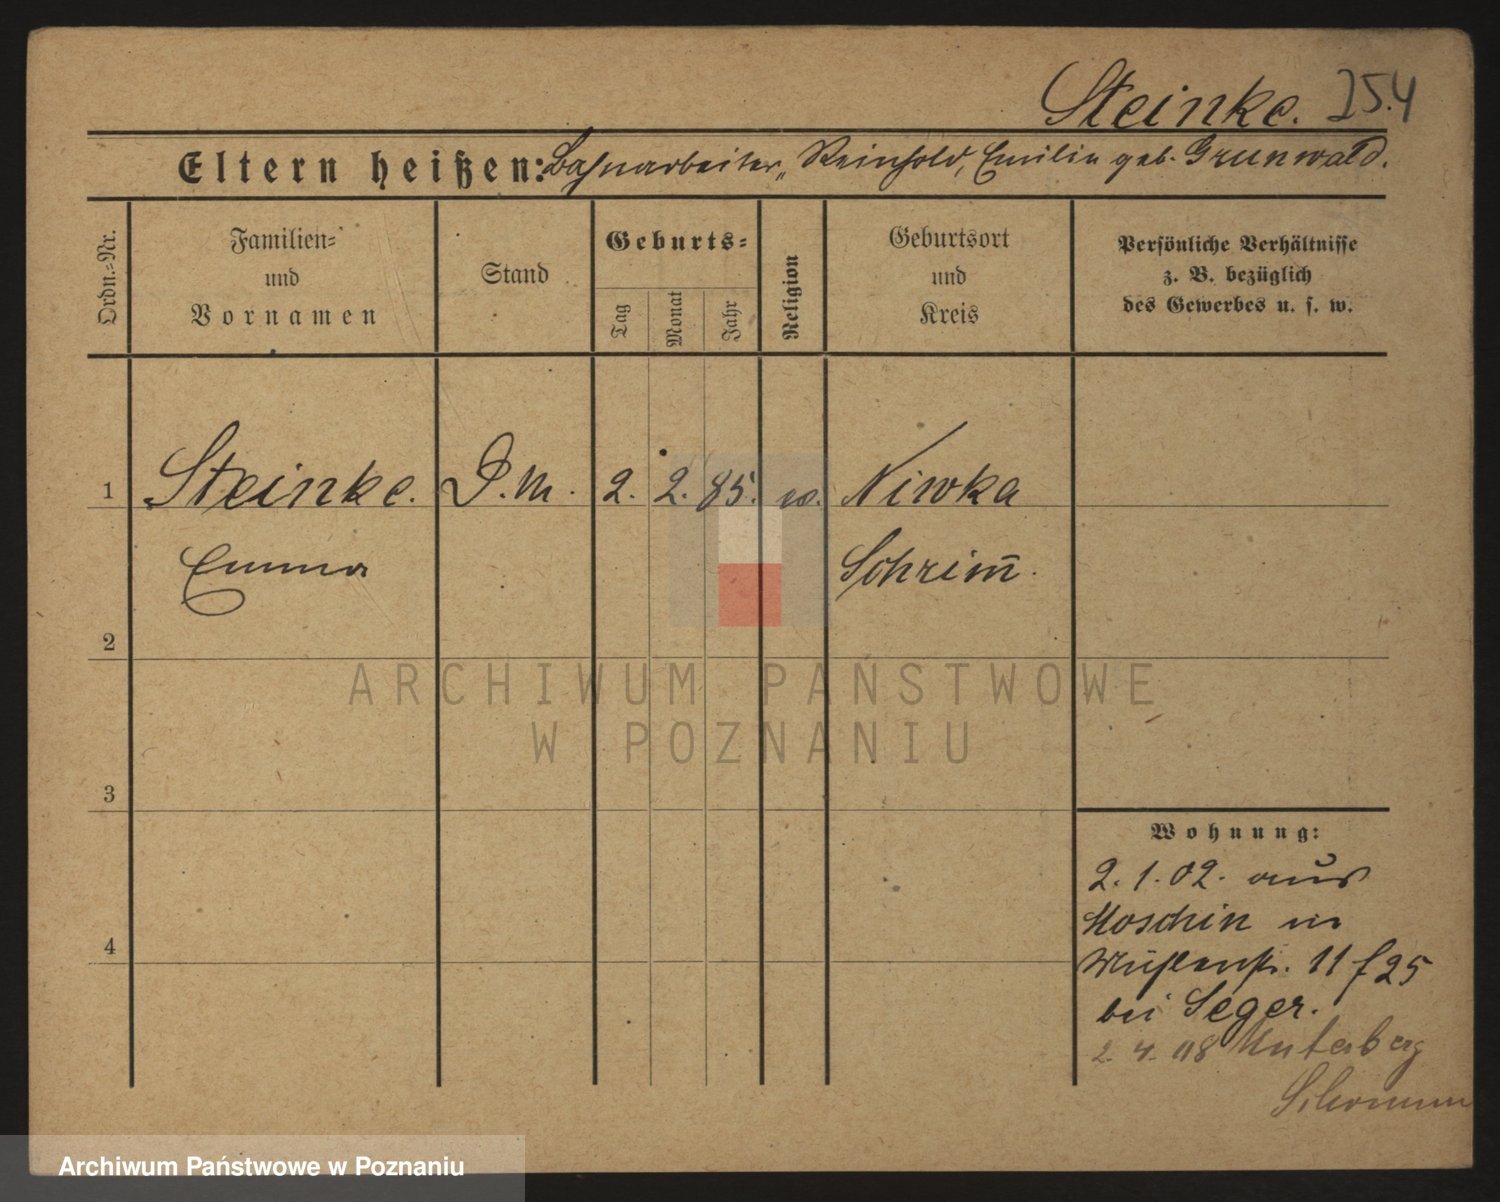 Steinke. 254
Eltern heißen: Bahnarbeiter, Reinhold, Emilie geb. Grunwald.
Ordn.-Nr.
Familien-
und
Vornamen
Stand
Geburts-
Tag
Monat
Jahr
Religion
Geburtsort
und
Kreis
Persönliche Verhältnisse
z. B. bezüglich
des Gewerbes u. s. w.
1 Steinke. D.M. 2. 2. 85. ev. Niwka
Emma Schrim̄.
2
3
4
Wohnung:
2.1.02. aus
Moschin in
11 f 25
bei Seger.
2. 4. 08 Unterberg
Schrimm
ARCHIWUM PAŃSTWOWE
W POZNANIU
Archiwum Państwowe w Poznaniu